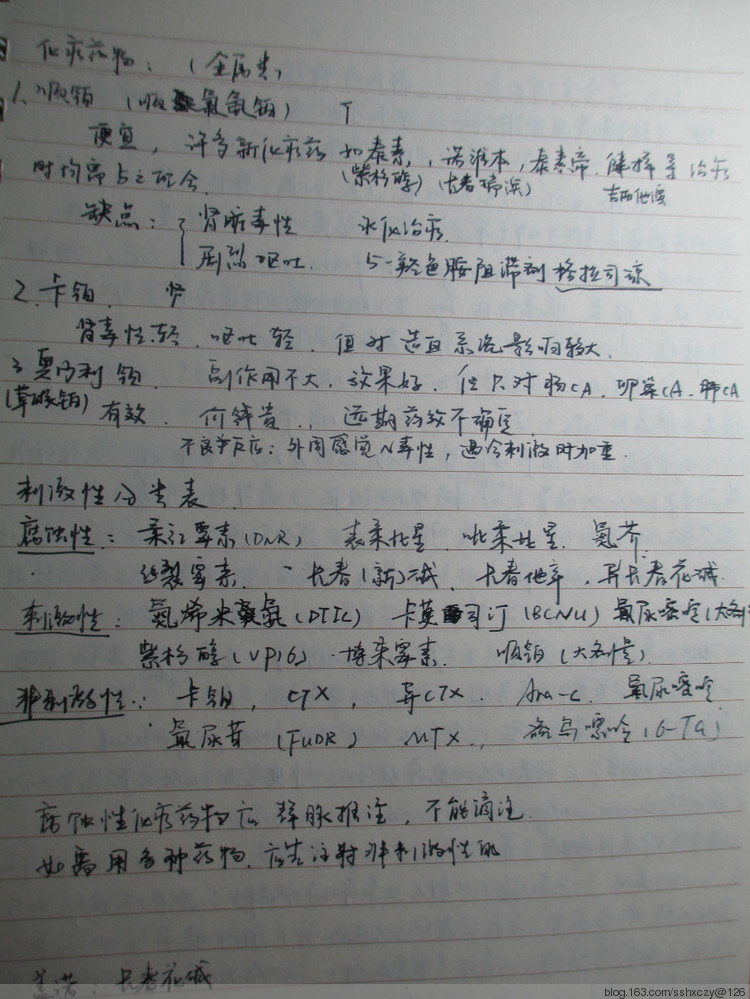 化疗药物：（金属类）
1.顺铂（顺氯氨铂） T
便宜，许多新化疗药如泰素，诺维本，泰素帝.健择等治疗
(紫杉醇)(长春瑞滨) 吉西他滨
时均需与之配合.
缺点：肾脏毒性 水化治疗.
剧烈呕吐. 5-羟色胺阻滞剂 格拉司凉
2.卡铂.
肾毒性轻.呕吐轻.但对造血系统影响较大.
3.奥沙利铂. 副作用不大.效果好.但只对肠CA.卵巢CA.肺CA
(草酸铂) 有效.价钱贵.，远期药效不确定
不良反应：外周感觉N毒性，遇冷刺激时加重.
刺激性分类表
腐蚀性：柔红霉素(DNR) 表柔比星.吡柔比星.氮芥.
丝裂霉素. 长春(新)碱.长春他辛.异长春花碱.
刺激性：氮烯米(DTIC) 卡莫司汀(BCNU) 氟尿嘧啶(大剂
紫杉醇(VP16).博来霉素. 顺铂(大剂量).
非刺激性：卡铂，CTX，异CTX.Ara-c.氟尿嘧啶.
氟尿苷(FUDR) MTX.，硫鸟嘌呤(6-TG)
腐蚀性化疗药物应静脉推注，不能滴注.
如需用多种药物.应先注射非刺激性的
盖诺：长春花碱
blog.163.com/sshxczy@126